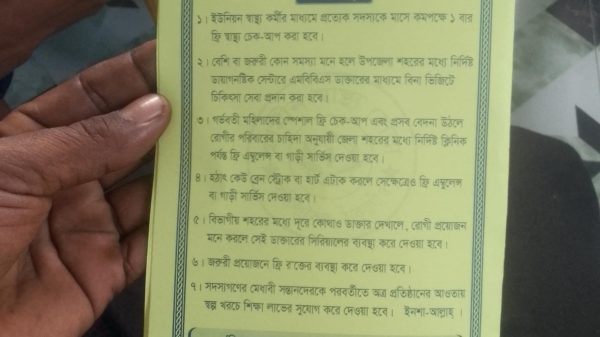 ১। ইউনিয়ন স্বাস্থ্য কর্মীর মাধ্যমে প্রত্যেক সদস্যকে মাসে কমপক্ষে ১ বার
ফ্রি স্বাস্থ্য চেক-আপ করা হবে।
২। বেশি বা জরুরী কোন সমস্যা মনে হলে উপজেলা শহরের মধ্যে নির্দিষ্ট
ডায়াগনষ্টিক সেন্টারে এমবিবিএস ডাক্তারের মাধ্যমে বিনা ভিজিটে
চিকিৎসা সেবা প্রদান করা হবে।
৩। গর্ভবতী মহিলাদের স্পেশাল ফ্রি চেক-আপ এবং প্রসব বেদনা উঠলে
রোগীর পরিবারের চাহিদা অনুযায়ী জেলা শহরের মধ্যে নির্দিষ্ট ক্লিনিক
পর্যন্ত ফ্রি এম্বুলেন্স বা গাড়ী সার্ভিস দেওয়া হবে।
৪। হঠাৎ কেউ ব্রেন স্ট্রোক বা হার্ট এটাক করলে সেক্ষেত্রেও ফ্রি এম্বুলেন্স
বা গাড়ী সার্ভিস দেওয়া হবে।
৫। বিভাগীয় শহরের মধ্যে দূরে কোথাও ডাক্তার দেখালে, রোগী প্রয়োজন
মনে করলে সেই ডাক্তারের সিরিয়ালের ব্যবস্থা করে দেওয়া হবে।
৬। জরুরী প্রয়োজনে ফ্রি রক্তের ব্যবস্থা করে দেওয়া হবে।
৭। সদস্যগণের মেধাবী সন্তানদেরকে পরবর্তীতে অত্র প্রতিষ্ঠানের আওতায়
স্বল্প খরচে শিক্ষা লাভের সুযোগ করে দেওয়া হবে। ইনশা-আল্লাহ।